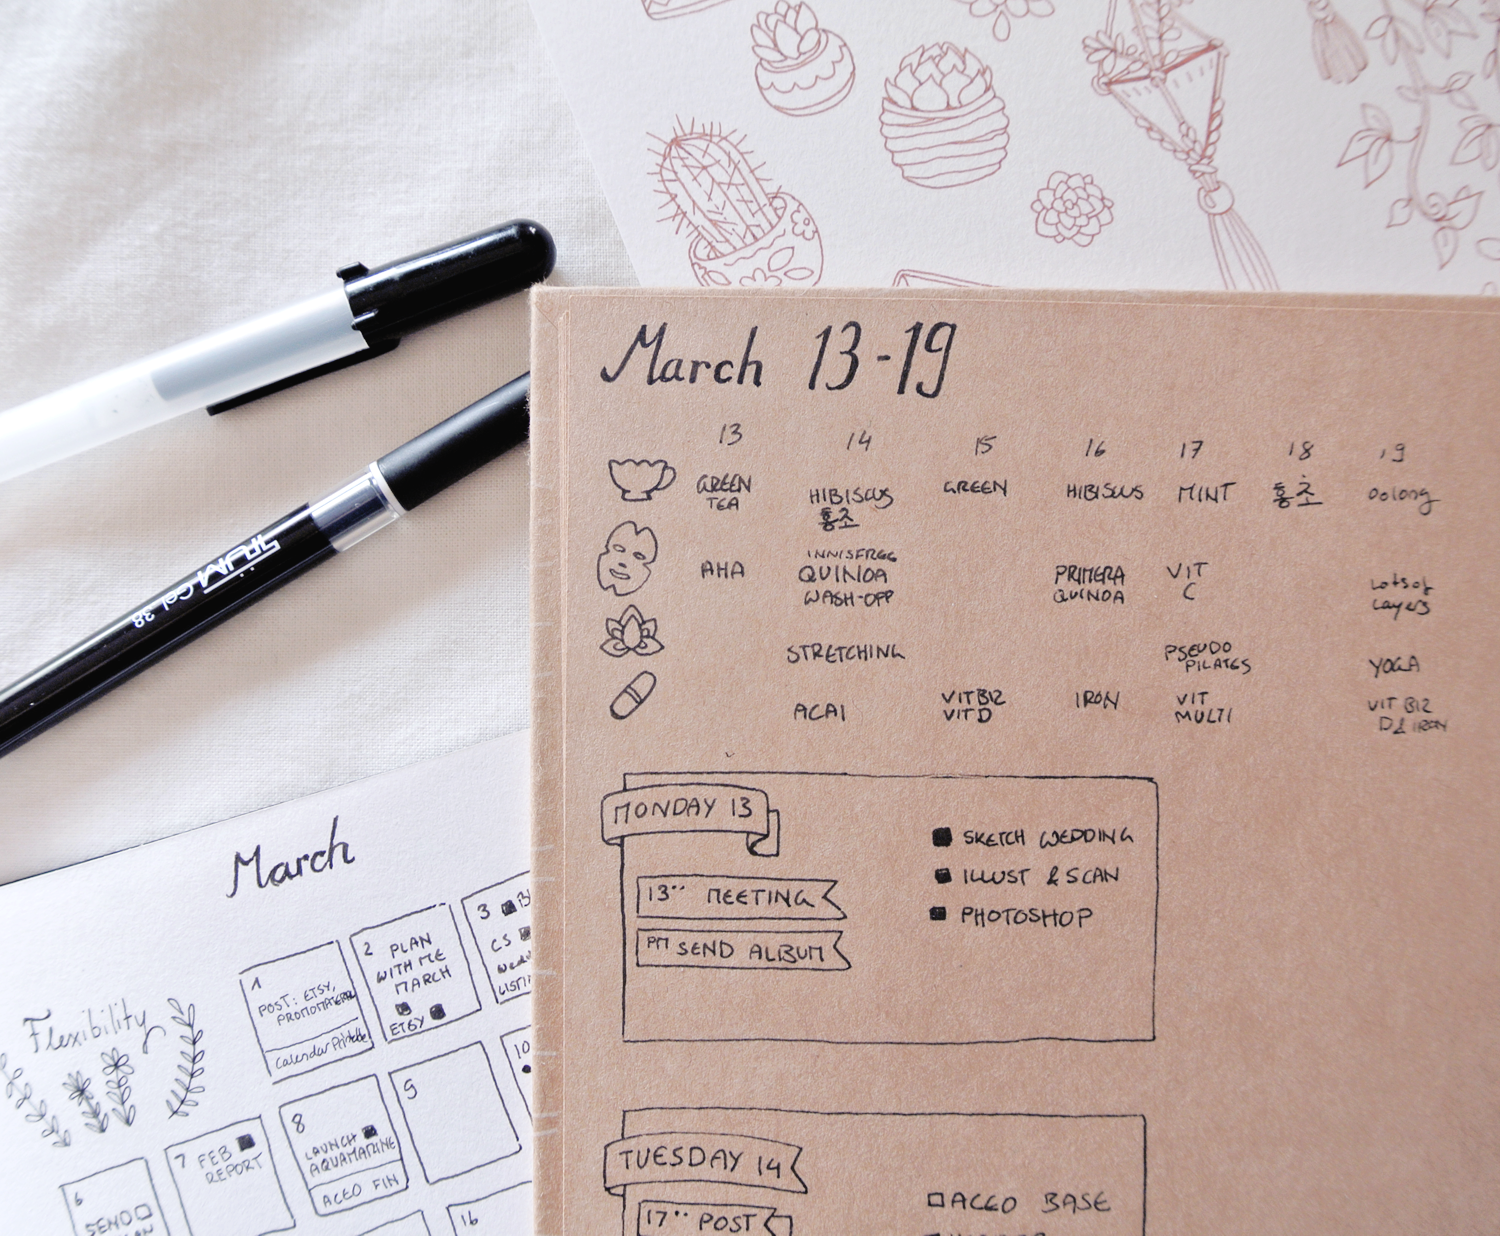 March 13-19
13 14 15 16 17 18 19
GREEN TEA
HIBISCUS
홍초
GREEN
HIBISCUS
MINT
홍초
oolong
AHA
INNISFREE
QUINOA
WASH-OFF
PRIMERA
QUINOA
VIT
C
Lots of
Layers
STRETCHING
PSEUDO
PILATES
YOGA
ACAI
VIT B12
VIT D
IRON
VIT
MULTI
VIT B12
D & IRON
MONDAY 13
13°° MEETING
PM SEND ALBUM
SKETCH WEDDING
ILLUST & SCAN
PHOTOSHOP
TUESDAY 14
17°° POST
ACEO BASE
March
Flexibility
1
POST: ETSY,
Calendar Printable
2 PLAN
WITH ME
MARCH
ETSY
3
CS
6
SEND
7 FEB
REPORT
8
LAUNCH
AQUAMARINE
ACEO FIN
9
10
16
COL 38